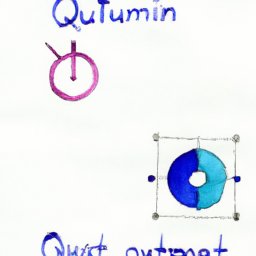 Qutumin
Qwst outmat